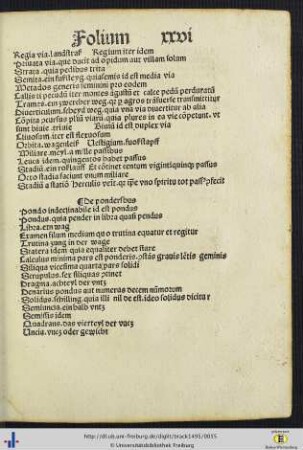 Folium xxvi
Regia via. landstraß Regium iter idem
Priuata via. que ducit ad opidum aut villam solam
Strata. quia pedibus trita
Semita. ein fußsteyg. quasi semis id est media via
Metados generis feminini pro eodem
Callis ē pecudū iter inter montes agustū et calce pedū perduratū
Trames. ein zwercher weg. qr p agros trāsuerse transmittitur
Diuerticulum. scheyd weg. quia vna via diuertitur ab alia
Copita quia plures in ea vie cōpetunt. vt
sunt biuie. triuie Biuiū id est duplex via
Cliuosum. iter est flexuosum
Orbita. wagenleiß Vestigium. fuoßstapff
Miliare. meyl. a mille passibus
Leuca idem. quingentos habet passus
Stadiū. ein roßlauff Et cōtinet centum vigintiquinqȝ passus
Octo stadia faciunt vnum miliare
Stadiū a statiō herculis
De ponderibus
Pondo indeclinabile id est pondus
Pondus. quia pender in libra quasi pendus
Libra. ein wag
Examen filum medium quo trutina equatur et regitur
Trutina zung in der wage
Statera idem quia equaliter debet stare
Calculus minima pars est ponderis. cōstās granis lētis geminis
Siliqua vicesima quarta pars solidi
Scrupulus. sex siliquas cōtinet
Dragma. achteyl der vntz
Denarius pondus aut numerus decem nūmorum
Solidus. schilling. quia illi nil deest. ideo solidus dicitur
Semiuncia. ein halb vntz
Semissis idem
Quadrans. das vierteyl der vntz
Uncia. vntz oder gewicht
http://dl.ub.uni-freiburg.de/diglit/brack1495/0055
© Universitätsbibliothek Freiburg